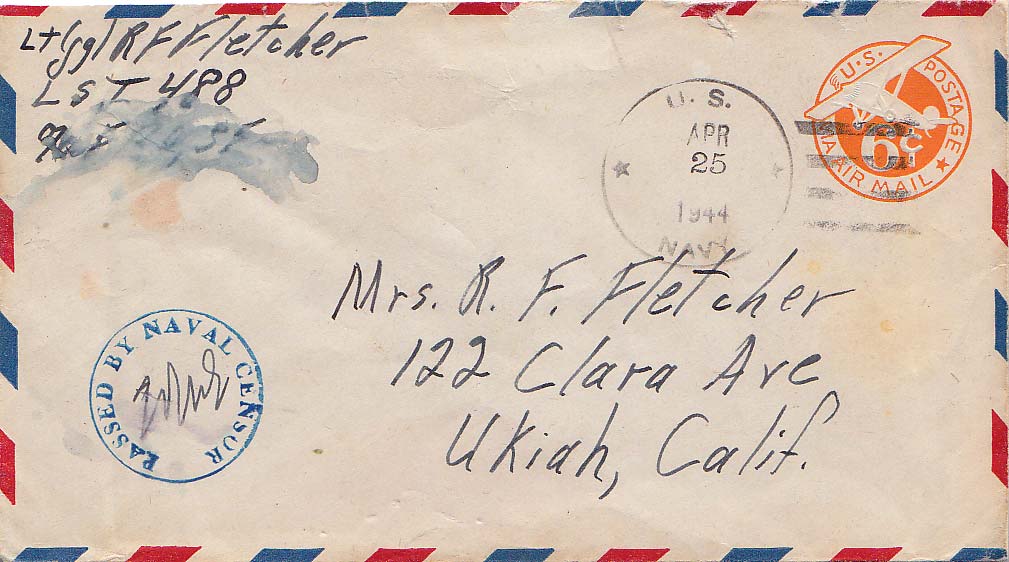 Lt(jg) R F Fletcher
LST 488
U. S.
APR
25
1944
NAVY
U.S. POSTAGE
6¢
VIA AIR MAIL
Mrs. R. F. Fletcher
122 Clara Ave
Ukiah, Calif.
PASSED BY NAVAL CENSOR